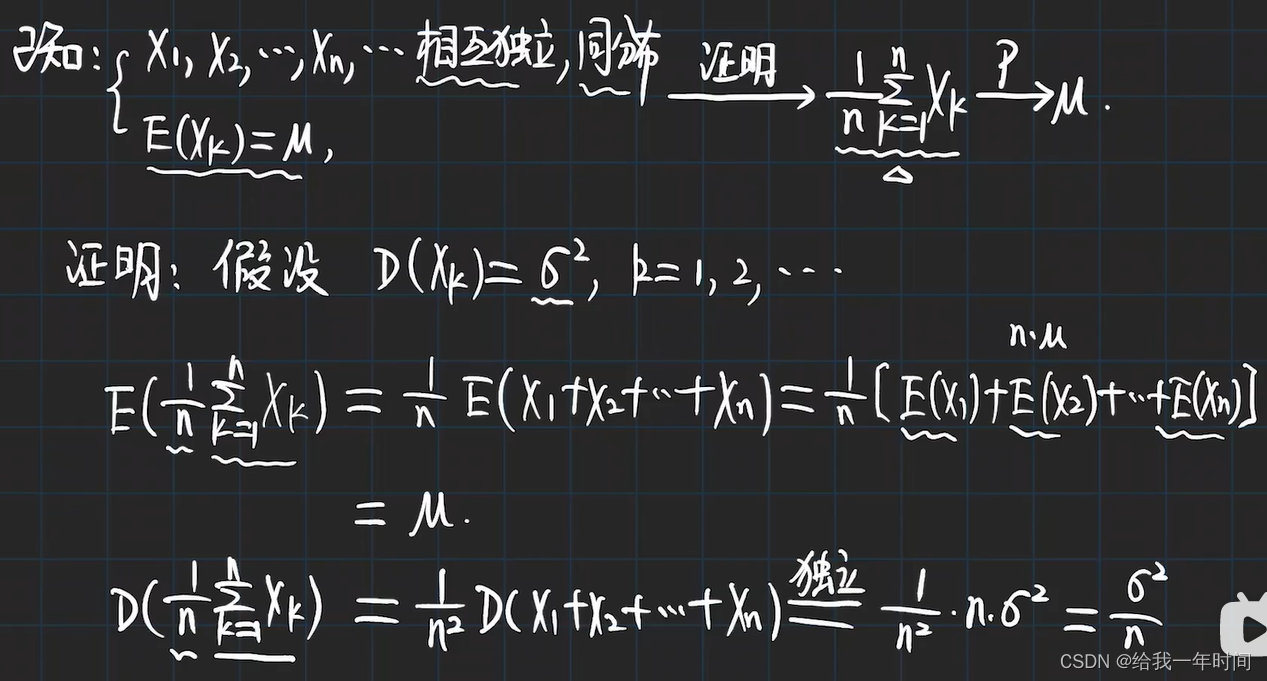 已知: { X₁, X₂, ⋯, Xₙ, ⋯ 相互独立, 同分布 证明→ 1/n ∑ₖ₌₁ⁿ Xₖ P→ μ.
E(Xₖ) = μ,
证明: 假设 D(Xₖ) = σ², k = 1, 2, ⋯
n·μ
E(1/n ∑ₖ₌₁ⁿ Xₖ) = 1/n E(X₁+X₂+⋯+Xₙ) = 1/n [E(X₁)+E(X₂)+⋯+E(Xₙ)]
= μ.
D(1/n ∑ₖ₌₁ⁿ Xₖ) = 1/n² D(X₁+X₂+⋯+Xₙ) 独立= 1/n² · n·σ² = σ²/n
CSDN @给我一年时间